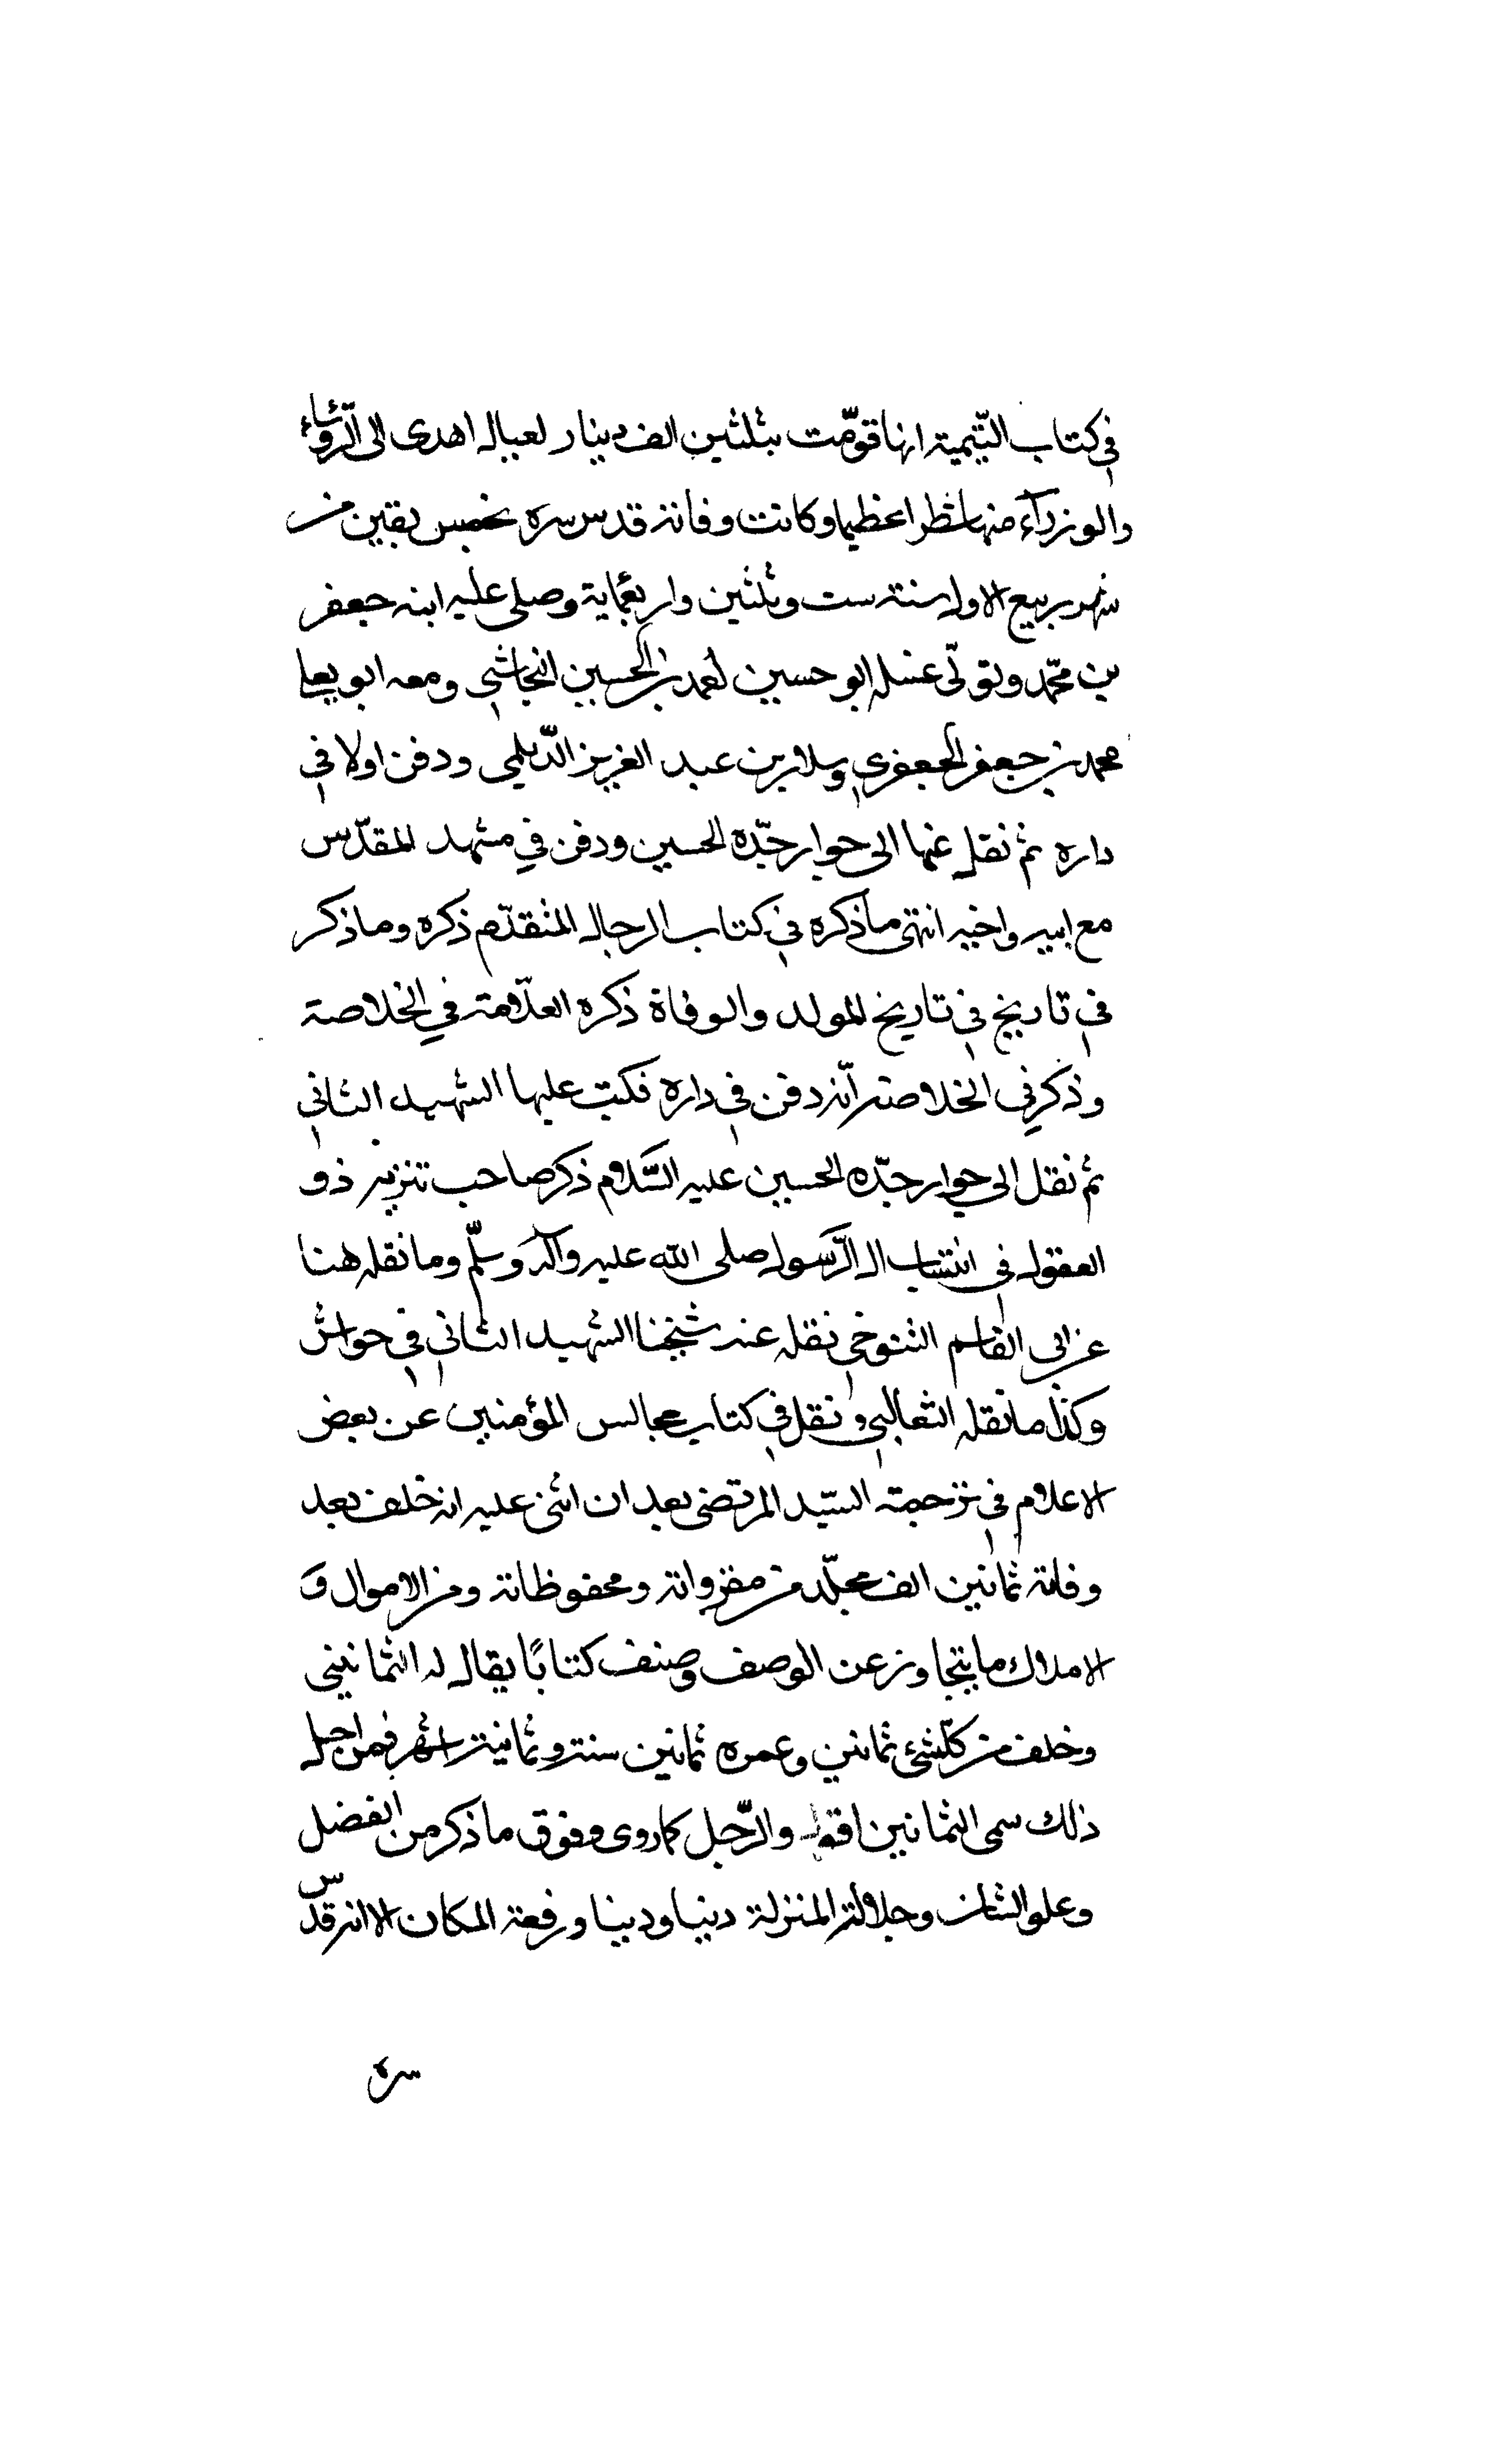 في كتاب اليتيمية انها قوّمت بثلثين الف دينار لعياله اهدى الى الرّوساء
والوزرآء منها شطرا عظيما وكانت وفاته قدس سره لخمس بقين من
شهر ربيع الاول سنته ست وثلثين واربعماية وصلى عليه ابنه جعفر
بن محمّد وتولّى غسله ابو حسين احمد بن الحسين النجاشي ومعه ابو يعلى
محمد بن جعفر الجعفري وسلار بن عبد العزيز الدّيلمى ودفن اولا في
داره ثم نقل عنها الى جوار جدّه الحسين ودفن في مشهد المقدّس
مع ابيه واخيه انتهى ما ذكره في كتاب الرجال المتقدّم ذكره وما ذكر
في تاريخ في تاريخ المولد والوفاة ذكره العلّامة في الخلاصة
وذكر في الخلاصة انّه دفن في داره فكتب عليها الشهيد الثاني
ثم نقل الى جوار جدّه الحسين عليه السّلام ذكر صاحب تنزيه ذو
العقول في انتساب ال الرّسول صلى الله عليه وآله وسلّم وما نقله هنا
عن ابى القاسم التنوخي نقله عنه شيخنا الشهيد الثاني في حواش
وكذا ما نقله الثعالبي ونقل في كتاب مجالس المؤمنين عن بعض
الاعلام في ترجمته السيّد المرتضى بعد ان اثنى عليه انه خلف بعد
وفاته ثمانين الف مجلّد من مقرواته ومحفوظاته ومن الاموال و
الاملاك ما يتجاوز عن الوصف وصنف كتابًا يقال له الثمانينى
وخلف من كلّشئ ثمانين وعمره ثمانين سنة وثمانية اشهر فمن اجل
ذلك سمى الثمانين اقول والرّجل كما روى وفوق ما ذكر من الفضل
وعلو الشان وجلالة المنزلة دنيا ودينا ورفعة المكان الا انه قدّس
سره